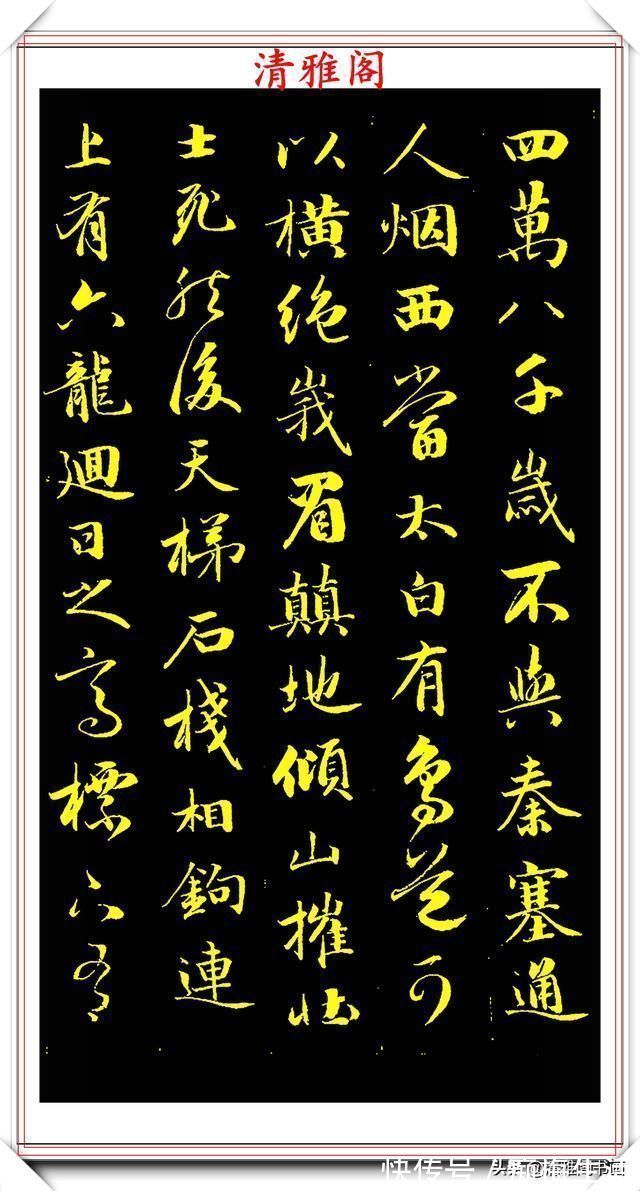 清雅阁
四萬八千歲不與秦塞通
人烟西當太白有鳥道可
以橫絶峩眉顛地傾山摧壮
士死然後天梯石棧相鉤連
上有六龍迴日之高標下有
快传号
头条@清雅阁书画